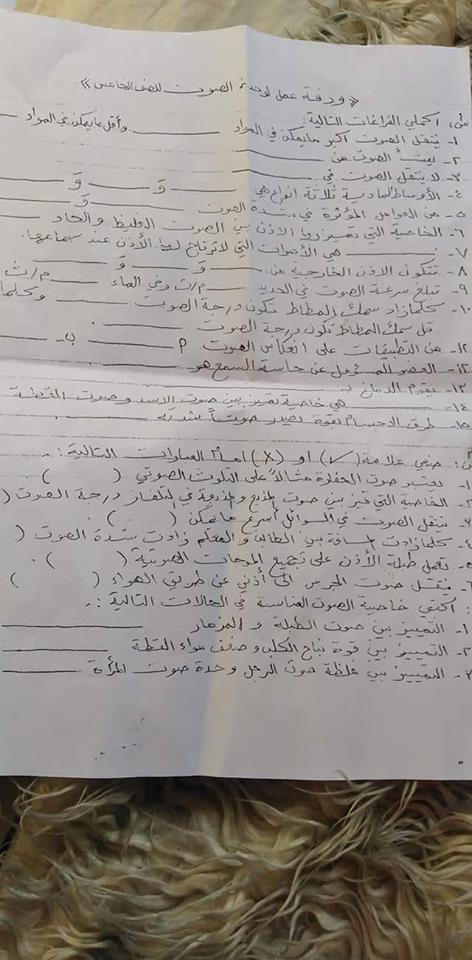 « ورقة عمل لوحدة الصوت للصف الخامس »
س١ اكملي الفراغات التالية:
١- ينتقل الصوت أكبر ما يمكن في المواد ______ وأقل ما يمكن في المواد
٢- ينشأ الصوت من ______
٣- لا ينتقل الصوت في ______
٤- الأوساط المادية ثلاثة أنواع هي ______ و ______ و ______
٥- من العوامل المؤثرة في شدة الصوت ______
٦- الخاصية التي تميز بها الأذن بين الصوت الغليظ والحاد ______
٧- ______ هي الأصوات التي لا ترتاح لها الأذن عند سماعها.
٨- تتكون الأذن الخارجية من ______ و ______ و ______
٩- تبلغ سرعة الصوت في الحديد ______ م/ث وفي الماء ______ م/ث
١٠- كلما زاد سمك المطاط تكون درجة الصوت ______ وكلما
قل سمك المطاط تكون درجة الصوت ______ .
١١- من التطبيقات على انعكاس الصوت ٢ ______ ب- ______
١٢- العضو المسؤول عن حاسة السمع هو ______
١٣- يقوم الدماغ بـ ______
١٤- ______ هي خاصية تميز بين صوت الأسد وصوت القطة
١٥- طرق الأجسام بقوة يصدر صوتاً شدته ______
ضعي علامة (✓) أو (✗) أمام العبارات التالية :-
١- يعتبر صوت الحفارة مثالاً على التلوث الصوتي ( ) .
٢- الخاصية التي تميز بين صوت المذيع والمذيعة في التلفاز درجة الصوت (
٣- ينتقل الصوت في السوائل أسرع ما يمكن ( )
٤- كلما زادت المسافة بين الطالب و المعلم زادت شدة الصوت (
٥- تعمل طبلة الأذن على تجميع الموجات الصوتية ( ) .
٦- ينتقل صوت الجرس الى أذني عن طريق الهواء ( )
اكتبي خاصية الصوت المناسبة في الحالات التالية :-
١- التمييز بين صوت الطبلة و المزمار ______
٢- التمييز بين قوة نباح الكلب و ضعف مواء القطة ______
٣- التمييز بين غلظة صوت الرجل وحدة صوت المرأة ______